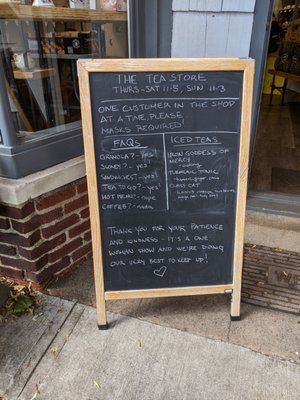 THE TEA STORE
THURS-SAT 11-5, SUN 11-3
ONE CUSTOMER IN THE SHOP
AT A TIME, PLEASE.
MASKS REQUIRED!
FAQs
GRANOLA? - yes!
SCONES? - yes!
SANDWICHES? - yes!
TEA TO GO? - yes!
HOT MENU? - nope
COFFEE? - nada
ICED TEAS
IRON GODDESS OF
MERCY
- oolong
TURMERIC TONIC
- turmeric, ginger,
CLASS CAT
THANK YOU FOR YOUR PATIENCE
AND KINDNESS - IT'S A ONE
WOMAN SHOW AND WE'RE DOING
OUR VERY BEST TO KEEP UP!